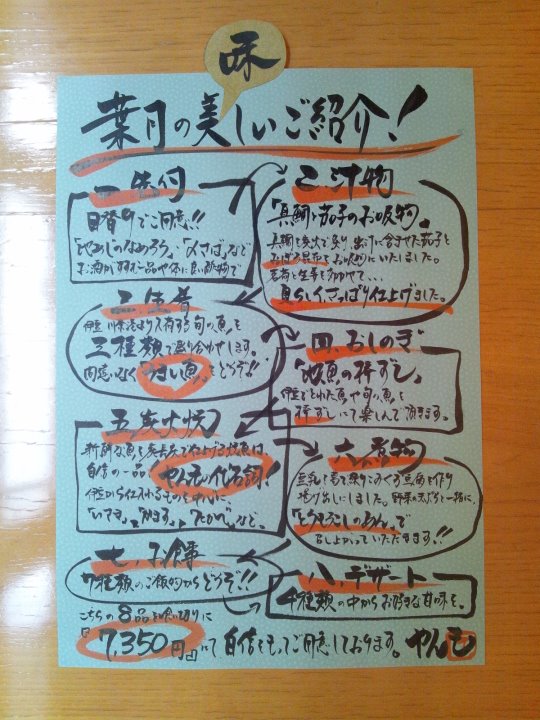 味
葉月の美しいご紹介!
一、先付
日替りでご用意!!
「地あじのなめろう」・「〆さば」など
お酒がすすむ一品や体に良い酢物で
二、汁物
「真鯛と茄子のお吸物」
真鯛を炭火で炙り、出汁に含ませた茄子と
お吸物にいたしました。
茗荷と生姜を効かせて、、、
夏らしくさっぱり仕上げました。
三、生肴
伊豆 川奈港より入荷する旬の魚を
三種類で盛り合わせします。
間違いなく「うまい魚」をどうぞ!!
四、おしのぎ
「地魚の棒ずし」
伊豆でとれた魚や旬の魚を
棒ずしにて楽しんで頂きます。
五、炭火焼
新鮮な魚を炭火で仕上げる焼魚は
自信の一品! やん毛の代名詞!
伊豆から仕入れるものを中心に
「いさき」、「かます」、「たかべ」など。
六、煮物
豆乳を葛で
揚げ出しにしました。野菜の煮びたしと一緒に
「とうもろこしのあん」で
召し上がっていただきます!!
七、お食事
7種類のご飯物からどうぞ!!
八、デザート
4種類の中からお好きな甘味を。
こちらの8品を食い切りに
『7,350円』にて自信をもってご用意しております。やんも